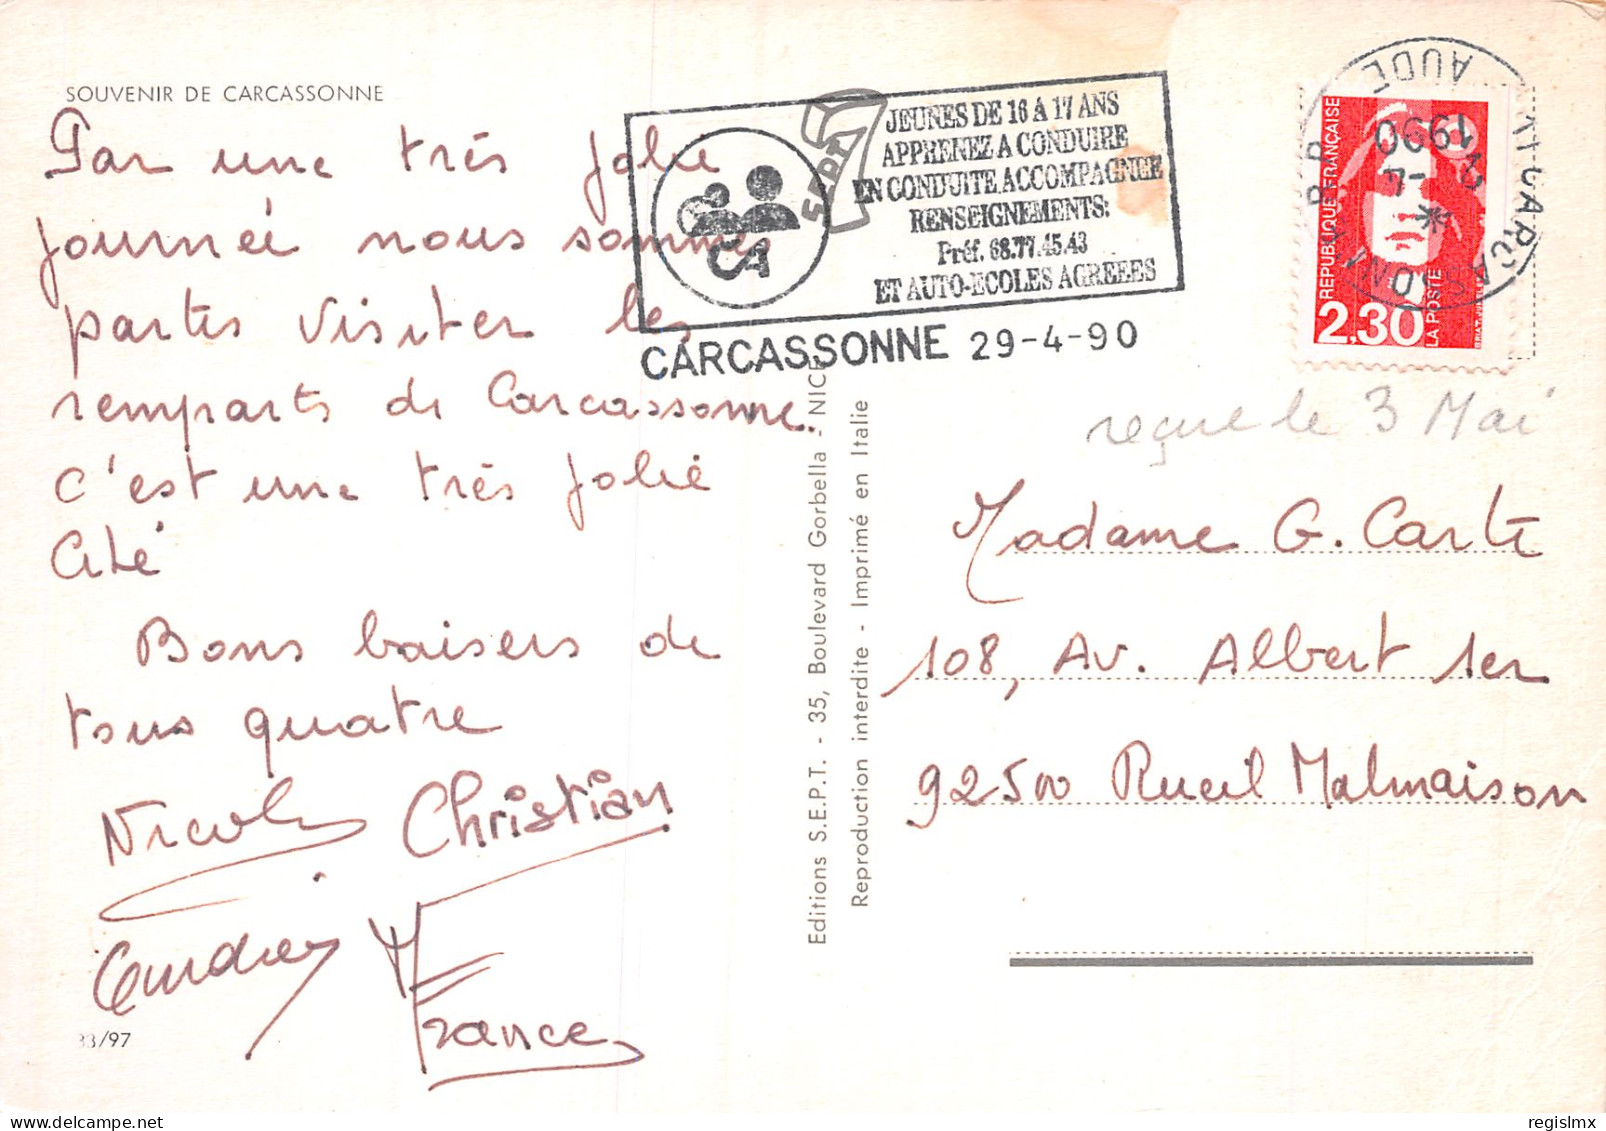 SOUVENIR DE CARCASSONNE
Par une très jolie
journeé nous sommes
partis visiter les
remparts de Carcassonne.
c'est une très jolie
Cité
Bons baisers de
tous quatre
Nicolas Christian
France
33/97
Editions S.E.P.T. - 35, Boulevard Gorbella - NICE
Reproduction interdite - Imprimé en Italie
SEPT
JEUNES DE 16 A 17 ANS
APPRENEZ A CONDUIRE
EN CONDUITE ACCOMPAGNEE
RENSEIGNEMENTS:
Préf. 68.77.45.43
ET AUTO-ECOLES AGREEES
CARCASSONNE 29-4-90
REPUBLIQUE FRANÇAISE
2,30
LA POSTE
AUDE
1990
reçue le 3 Mai
Madame G. Carte
108, Av. Albert 1er
92500 Rueil Malmaison
regislmx